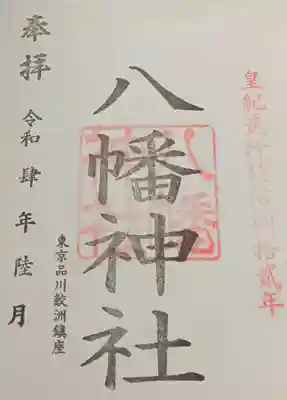 皇紀貳阡陸佰捌拾貳年
八幡神社
東京品川鮫洲鎮座
奉拝
令和肆年陸月